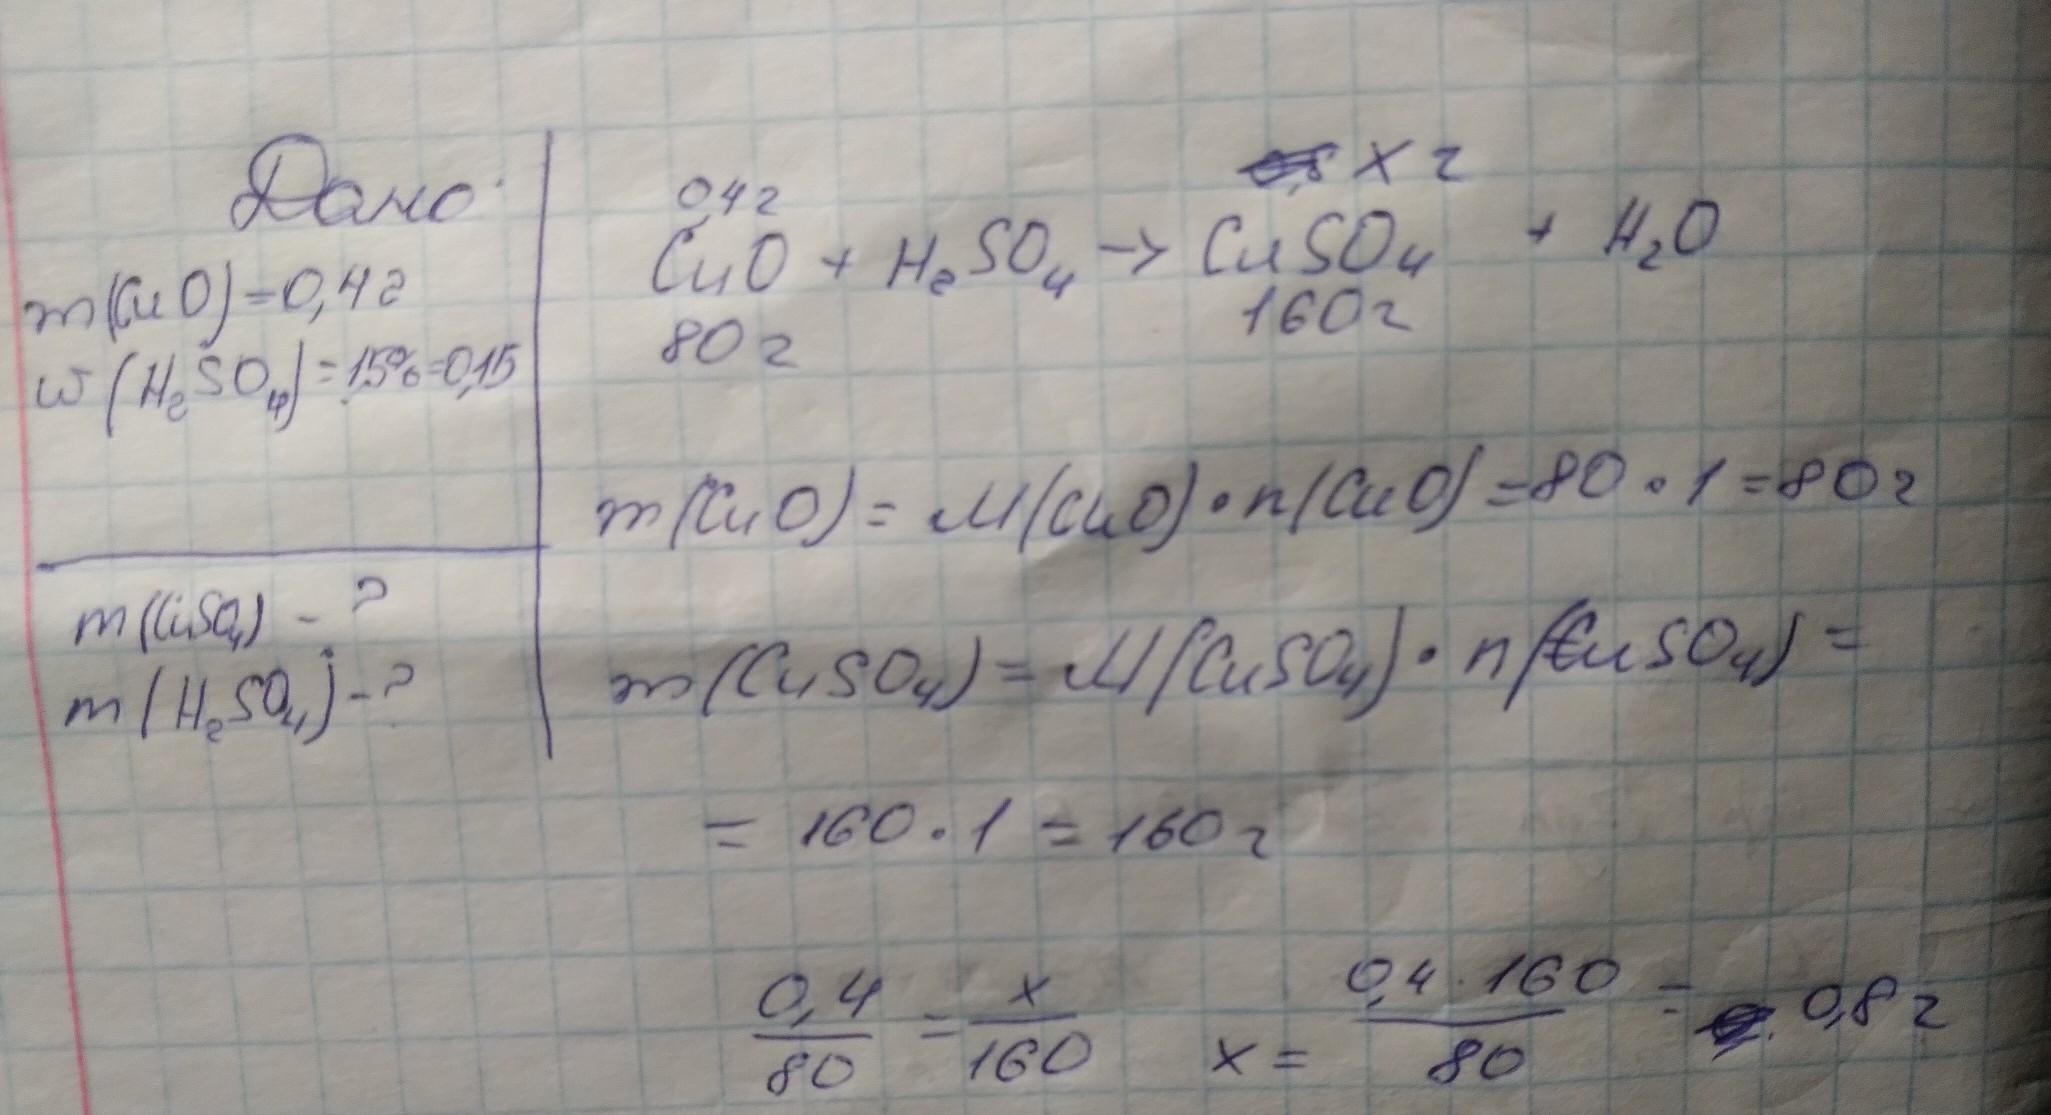 Дано:
m(CuO)=0,4г
w(H₂SO₄)=15%=0,15
m(CuSO₄) - ?
m(H₂SO₄) - ?
0,4г х г
CuO + H₂SO₄ → CuSO₄ + H₂O
80г 160г
m(CuO) = M(CuO)·n(CuO) = 80·1 = 80г
m(CuSO₄) = M(CuSO₄)·n(CuSO₄) =
= 160·1 = 160г
0,4/80 = x/160 x = 0,4·160/80 = 0,8г